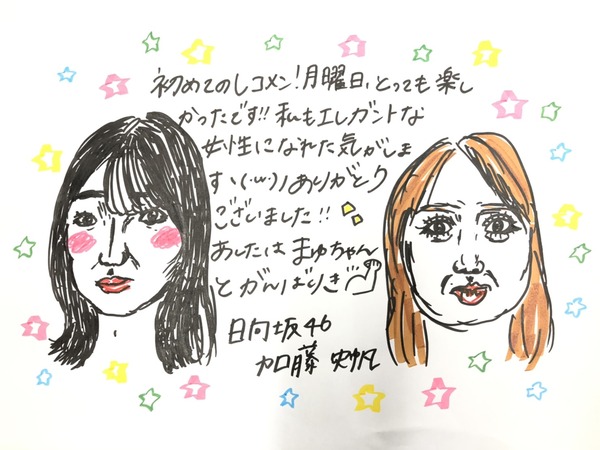 初めてのレコメン!月曜日、とっても楽し
かったです!!私もエレガントな
女性になれた気がしま
す丶(・ω・)ノありがとう
ございました!!
あしたは まゆちゃん
とがんばりき
日向坂46
加藤 史帆